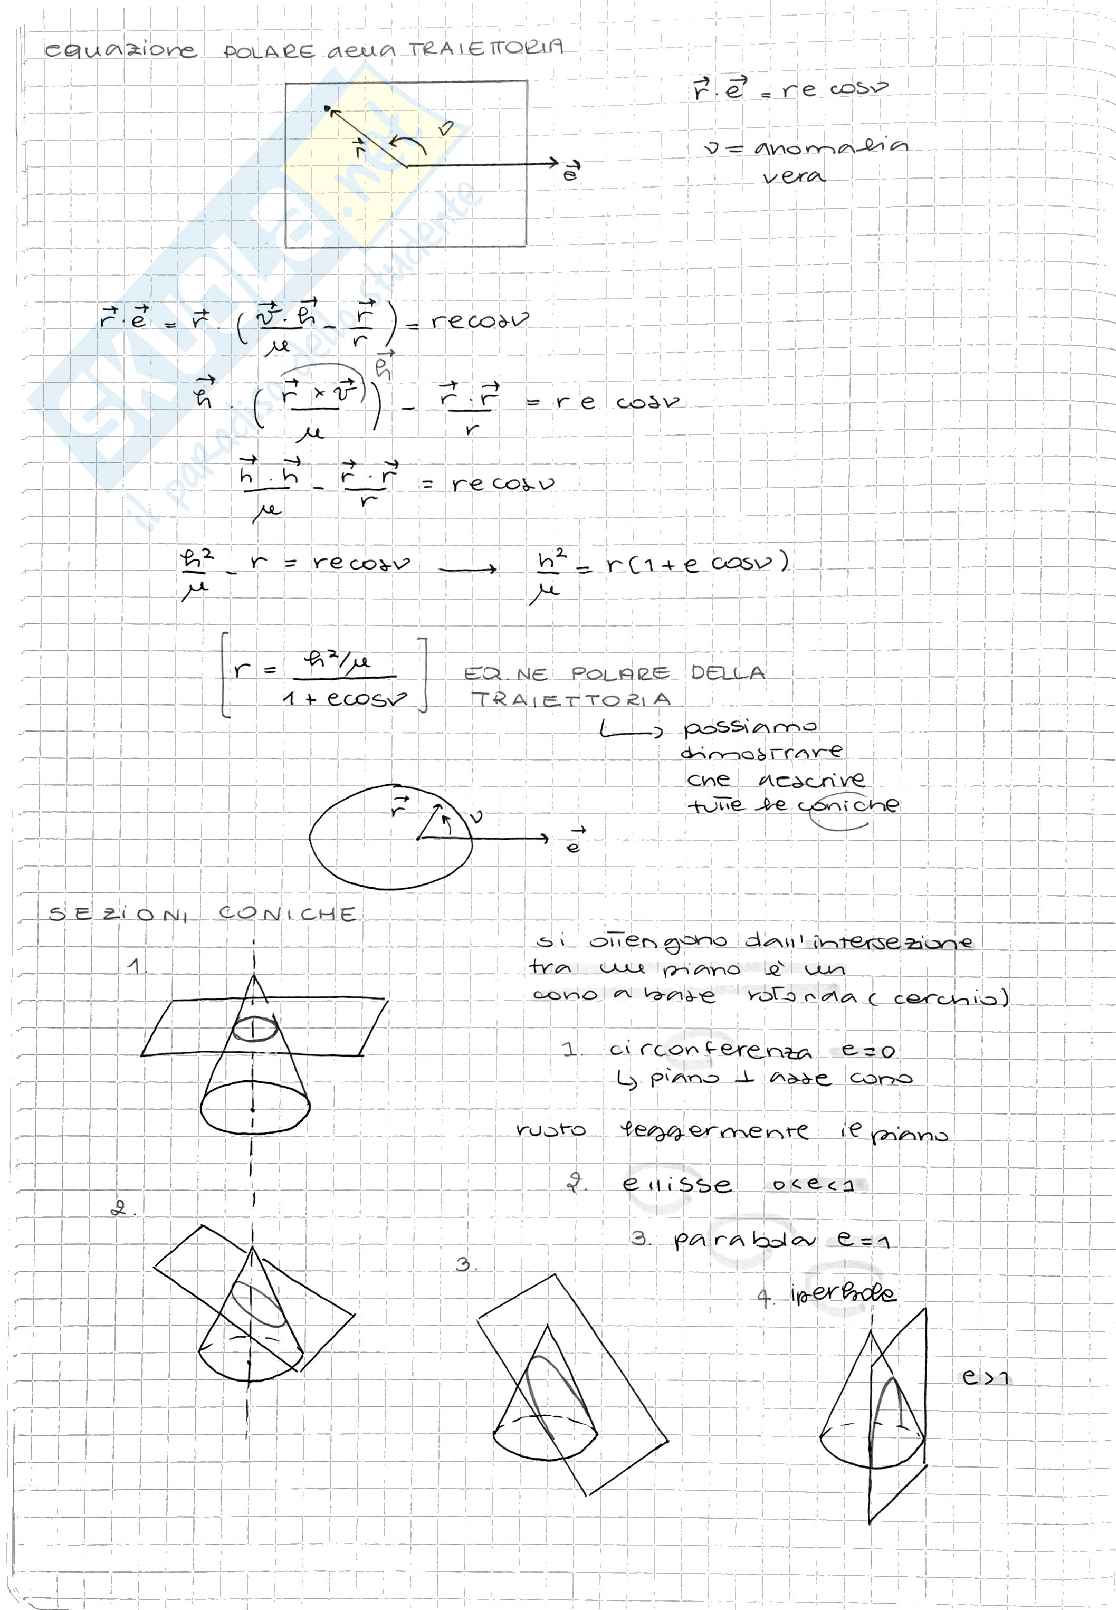 equazione POLARE della TRAIETTORIA
r⃗ · e⃗ = r e cosν
ν = anomalia
vera
ν
r⃗
e⃗
r⃗ · e⃗ = r⃗ · ( v⃗ · h⃗ / μ - r⃗ / r ) = r e cosν
h⃗
h⃗ · ( r⃗ × v⃗ / μ ) - r⃗ · r⃗ / r = r e cosν
h⃗ · h⃗ / μ - r⃗ · r⃗ / r = r e cosν
h² / μ - r = r e cosν → h² / μ = r(1 + e cosν)
[ r = h²/μ / 1 + e cosν ] EQ.NE POLARE DELLA
TRAIETTORIA
↳ possiamo
dimostrare
che descrive
tutte le coniche
r⃗ ν
e⃗
SEZIONI CONICHE
si ottengono dall'intersezione
1.
tra un piano è un
cono a base rotonda (cerchio)
1. circonferenza e=0
↳ piano ⊥ asse cono
ruoto leggermente il piano
2. ellisse 0<e<1
2.
3. parabola e=1
3.
4. iperbole
e>1
SKUOLA.net
il paradiso dello studente